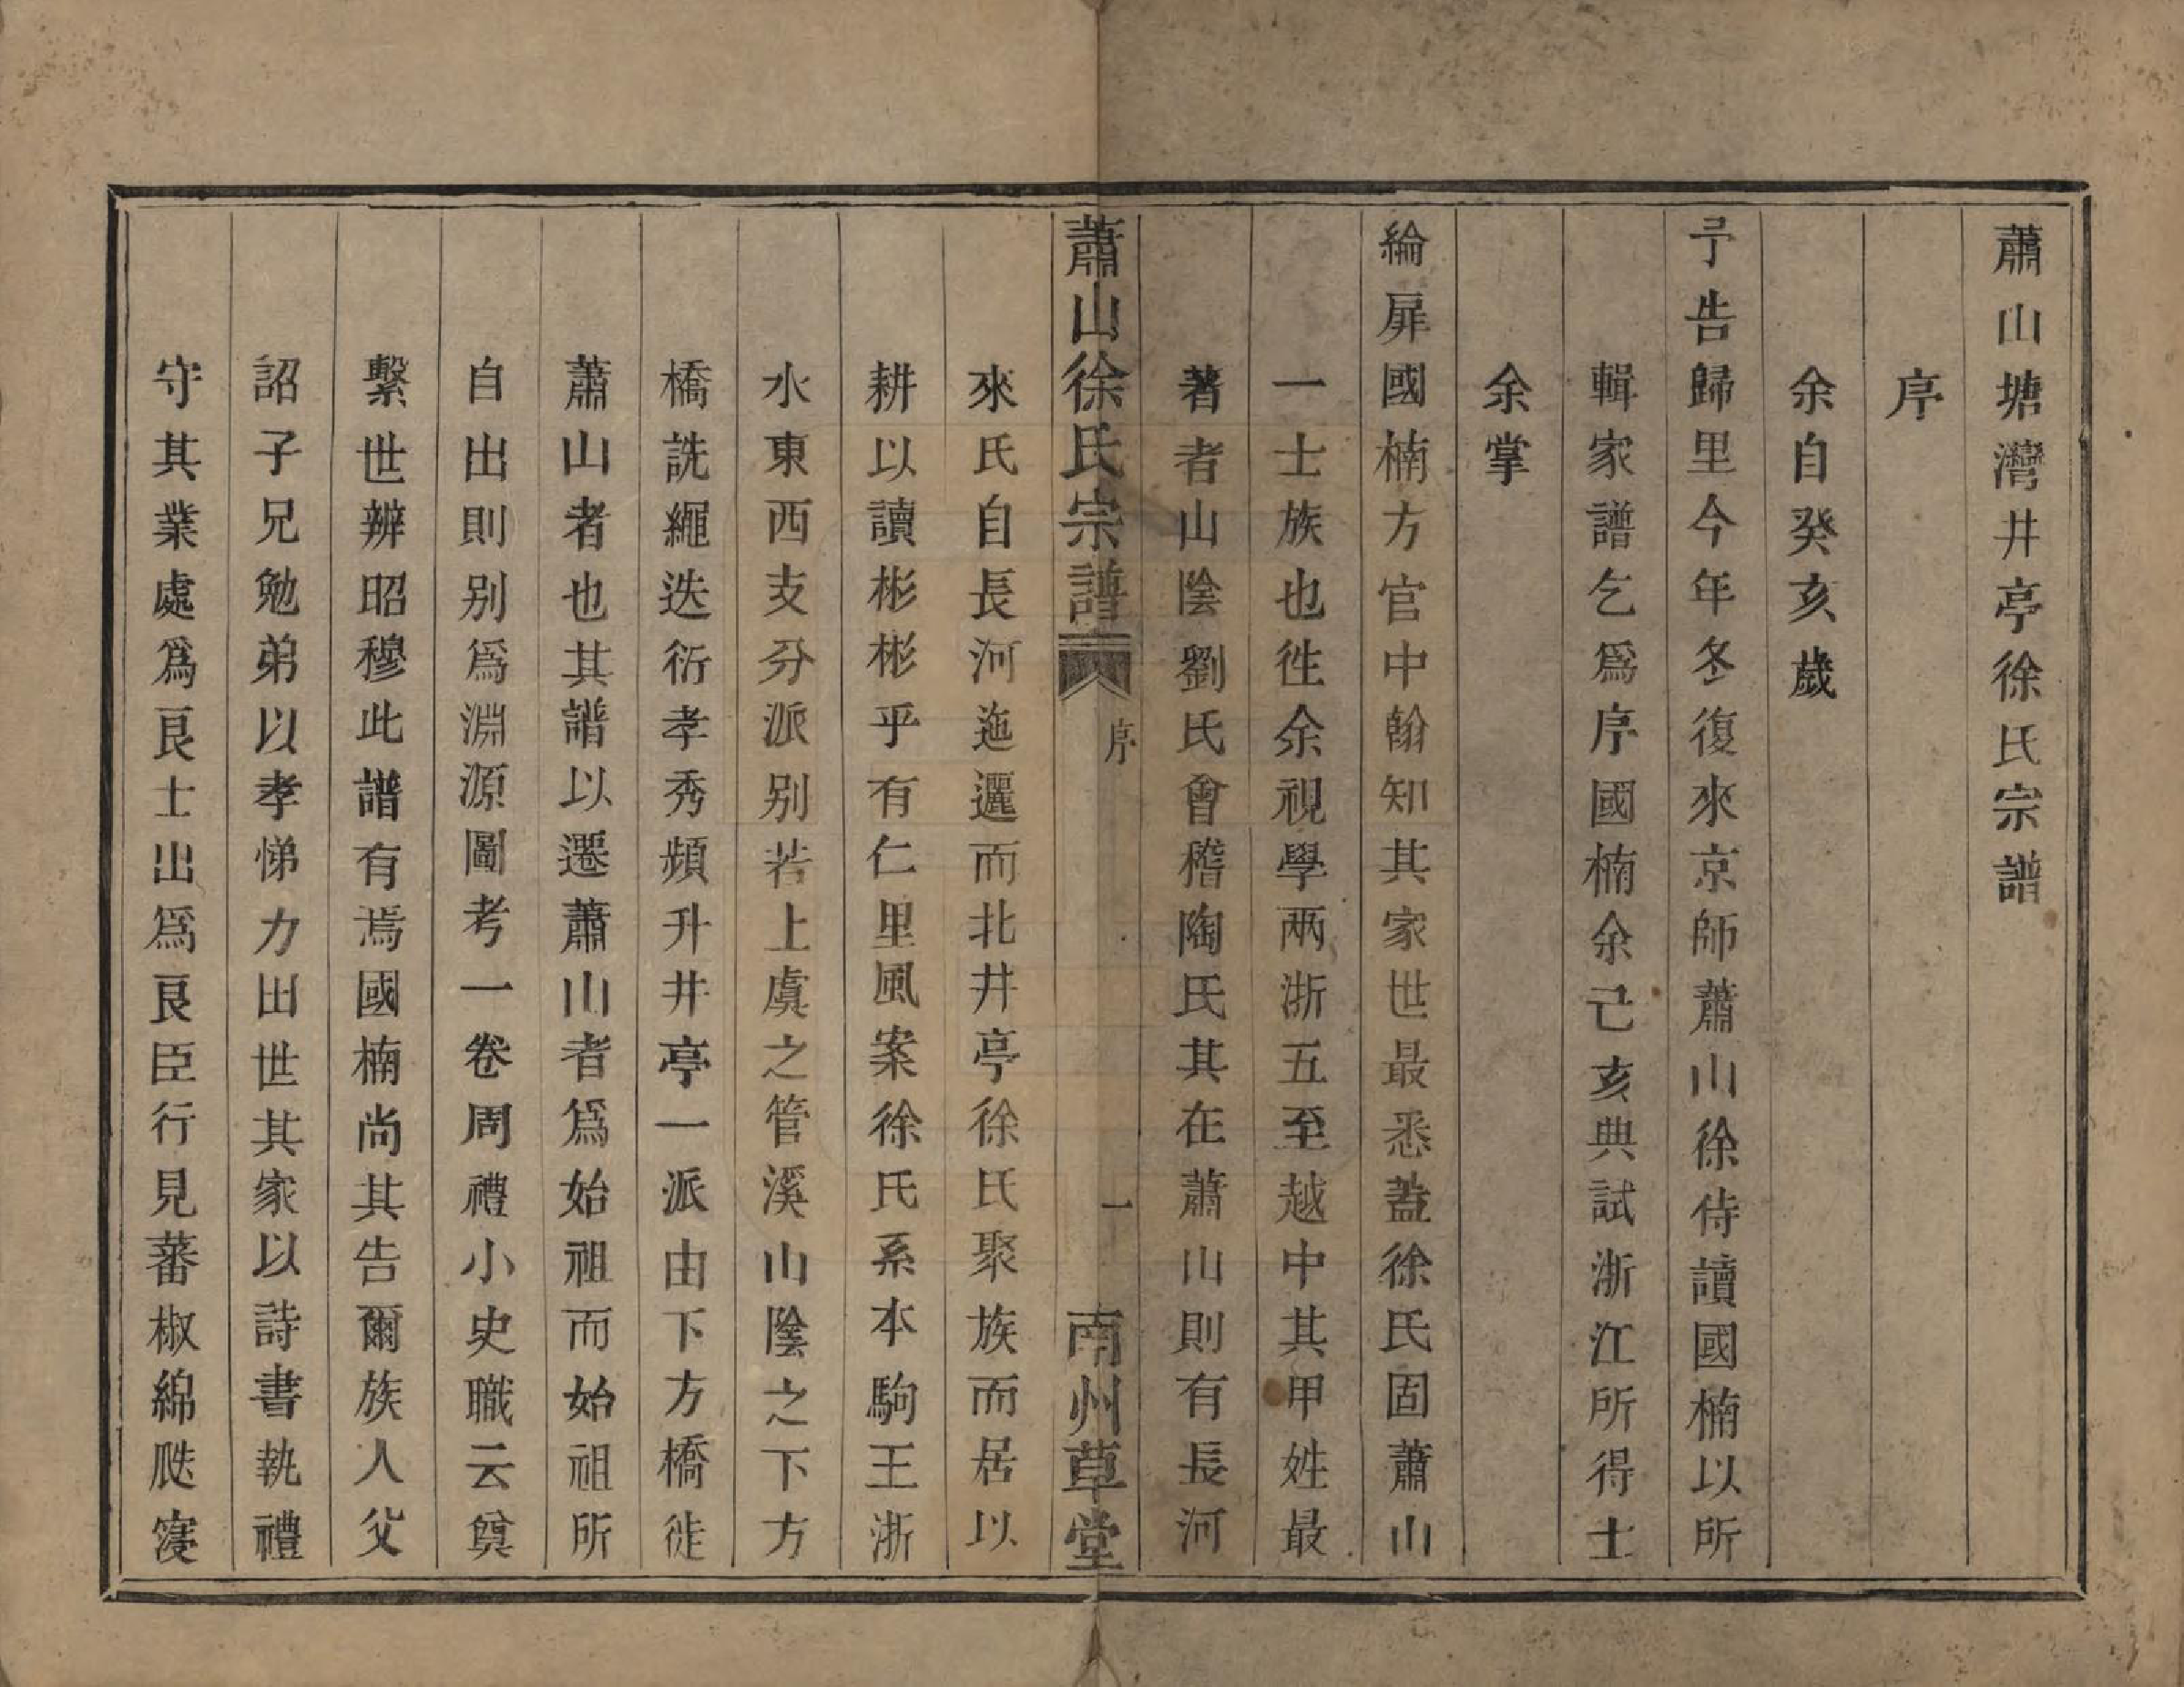 蕭山塘灣井亭徐氏宗譜
序
余自癸亥歲
予告歸里今年冬復來京師蕭山徐侍讀國楠以所
輯家譜乞爲序國楠余己亥典試浙江所得士
余掌
綸扉國楠方官中翰知其家世最悉蓋徐氏固蕭山
一士族也徃余視學两浙五至越中其甲姓最
著者山陰劉氏會稽陶氏其在蕭山則有長河
蕭山徐氏宗譜 序 一 南州草堂
來氏自長河迤邐而北井亭徐氏聚族而居以
耕以讀彬彬乎有仁里風案徐氏系本駒王浙
水東西支分派别若上虞之管溪山陰之下方
橋詵繩迭衍孝秀頻升井亭一派由下方橋徙
蕭山者也其譜以遷蕭山者爲始祖而始祖所
自出則别爲淵源圖考一卷周禮小史職云奠
繫世辨昭穆此譜有焉國楠尚其告爾族人父
詔子兄勉弟以孝悌力田世其家以詩書執禮
守其業處爲良士出爲良臣行見蕃椒綿瓞寖